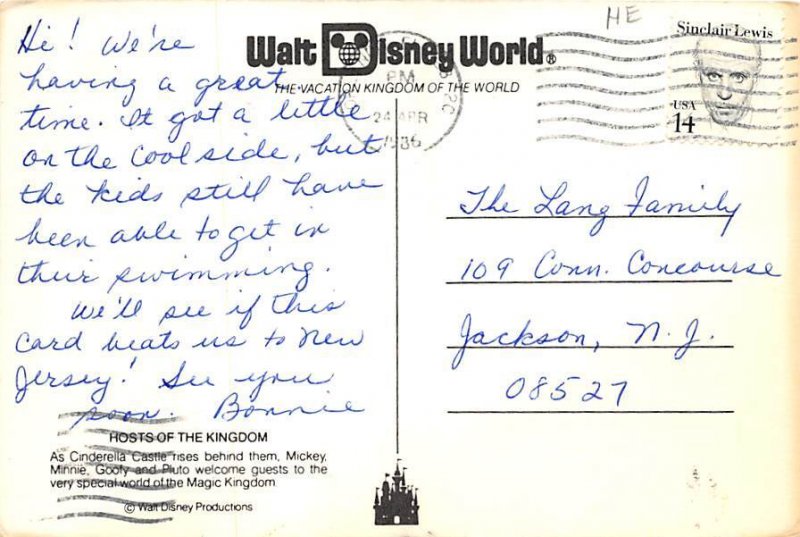 HE
Walt Disney World®
THE VACATION KINGDOM OF THE WORLD
Sinclair Lewis
USA
14
PM
24 APR
1986
Hi! We're
having a great
time. It got a little
on the cool side, but
the kids still have
been able to get in
their swimming.
We'll see if this
card beats us to New
Jersey! See you
soon. Bonnie
The Lang Family
109 Conn. Concourse
Jackson, N.J.
08527
HOSTS OF THE KINGDOM
As Cinderella Castle rises behind them, Mickey,
Minnie, Goofy and Pluto welcome guests to the
very special world of the Magic Kingdom
© Walt Disney Productions